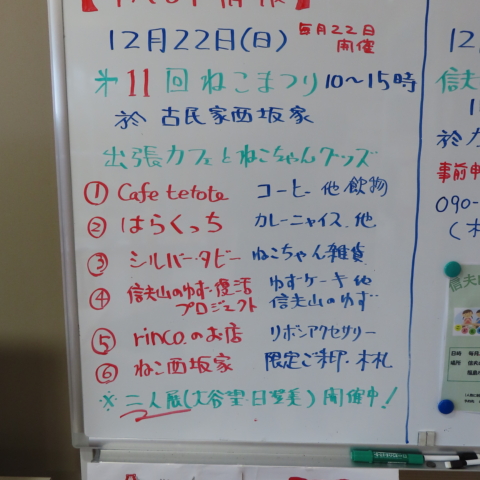 12月22日(日) 毎月22日
開催
第11回ねこまつり 10〜15時
於 古民家西坂家
出張カフェとねこちゃんグッズ
① Cafe tetote コーヒー他飲物
② はらくっち カレーニャイス.他
③ シルバータビー ねこちゃん雑貨
④ 信夫山のゆず復活 ゆずケーキ他
プロジェクト 信夫山のゆず
⑤ rinco.のお店 リボンアクセサリー
⑥ ねこ西坂家 限定ご朱印・木札
※二人展(大谷望・日望美)開催中!
12
信夫
於
事前申
090-
(
信夫
日時
場所